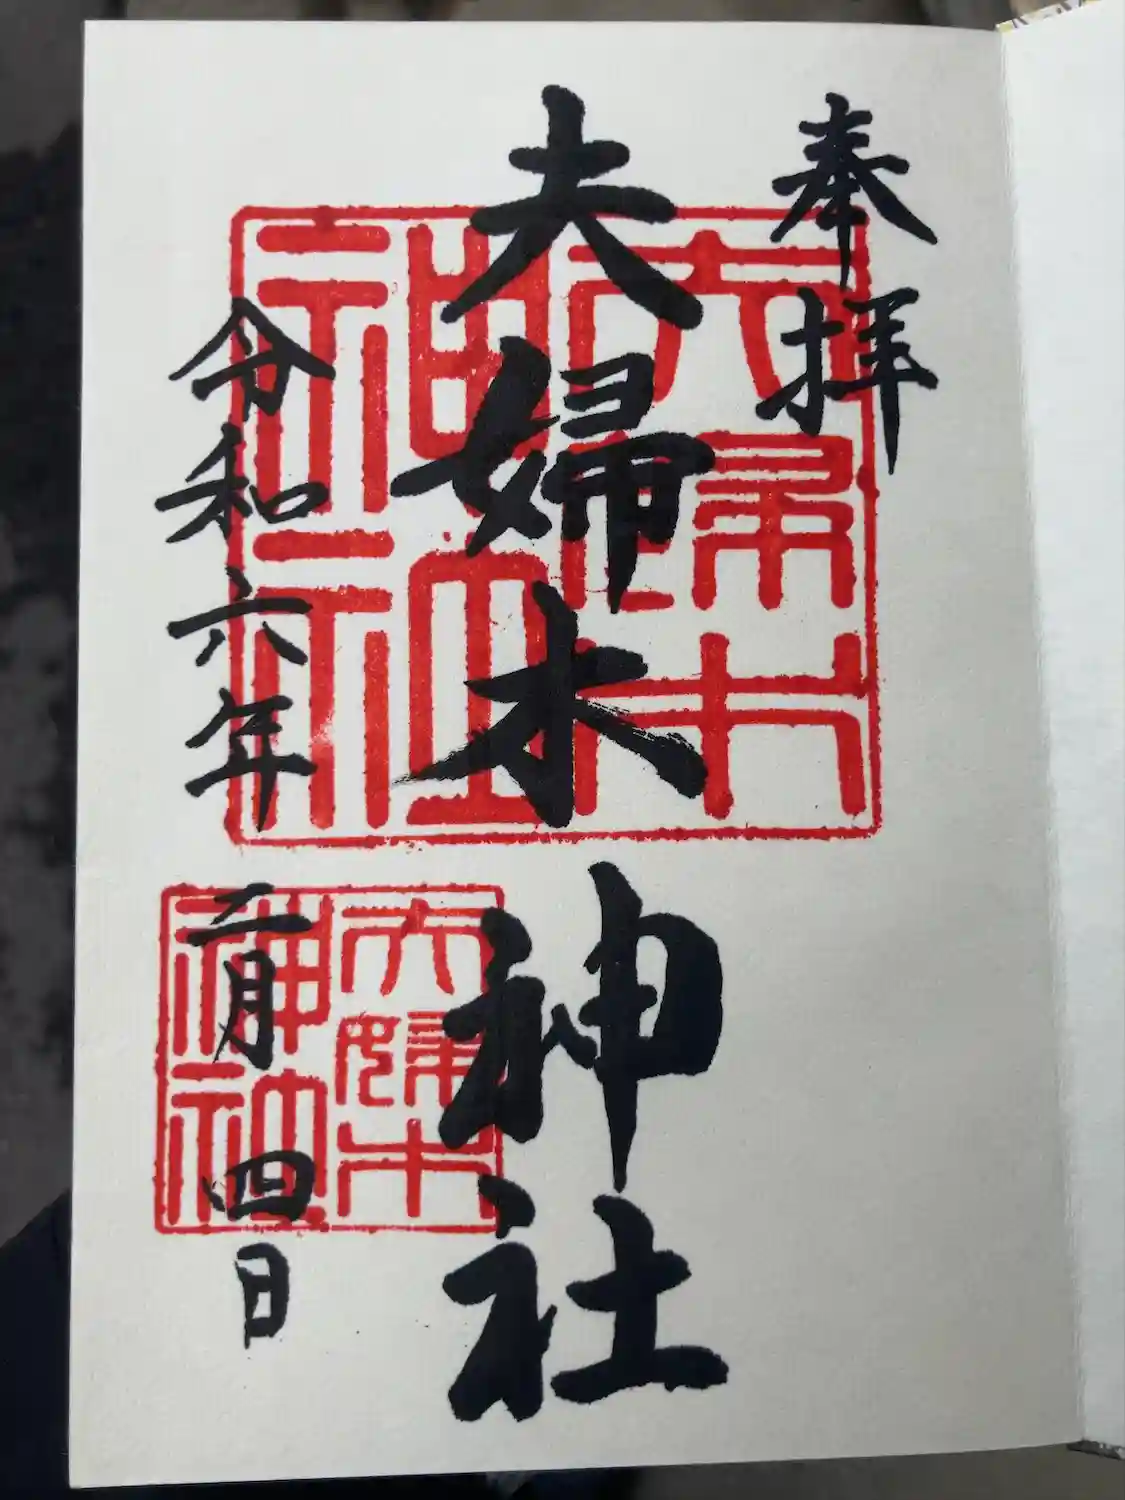 奉拝
夫婦木神社
令和六年二月四日
夫婦木
神社